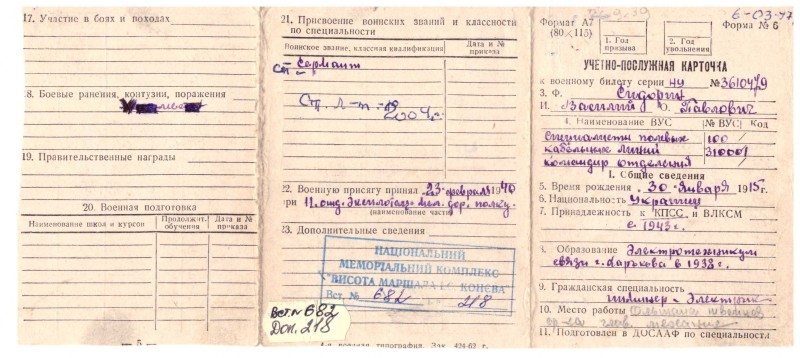 17. Участие в боях и походах
18. Боевые ранения, контузии, поражения
19. Правительственные награды
20. Военная подготовка
Наименование школ и курсов
Продолжит. обучения
Дата и № приказа
— 5 —
21. Присвоение воинских званий и классности
по специальности
Воинское звание, классная квалификация
Дата и № приказа
Сержант
Ст.
2004г.
22. Военную присягу принял 23 февраля 1940
при
(наименование части)
23. Дополнительные сведения
НАЦІОНАЛЬНИЙ
МЕМОРІАЛЬНИЙ КОМПЛЕКС
"ВИСОТА МАРШАЛА І. КОНЄВА"
Вст. № 682 218
Вст. № 682
Доп. 218
4-я военная типография. Зак. 424-62 г.
6-03-77
Формат А7
(80×115)
Форма № 6
1. Год призыва
2. Год увольнения
УЧЕТНО-ПОСЛУЖНАЯ КАРТОЧКА
к военному билету серии НЧ № 3610479
3. Ф. Сидорин
И. Василий О. Павлович
4. Наименование ВУС № ВУС Код
специалисты полевых 100
кабельных линий 31000
командир отделения
I. Общие сведения
5. Время рождения 30 января 1915 г.
6. Национальность Украинец
7. Принадлежность к КПСС и ВЛКСМ
с 1943 г.
8. Образование Электротехникум
связи г. Харькова в 1938 г.
9. Гражданская специальность
Электрик
10. Место работы
11. Подготовлен в ДОСААФ по специальности